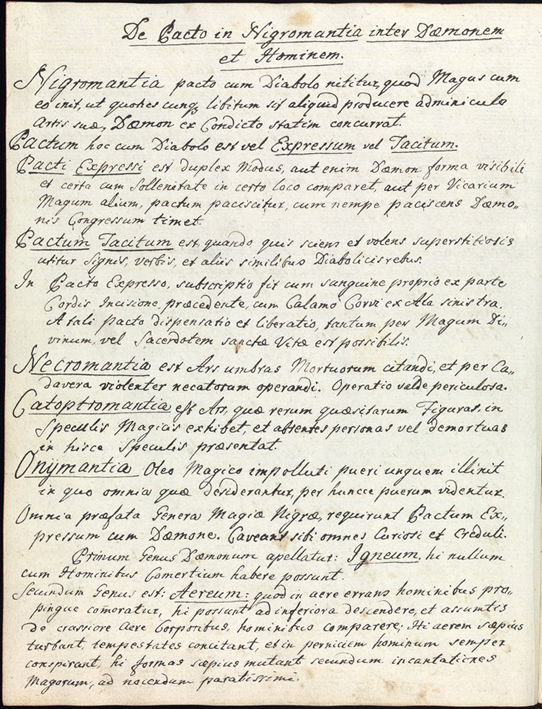 De Pacto in Nigromantia inter Dæmonem
et Hominem.
Nigromantia pacto cum Diabolo nititur, quod Magus cum
eo init, ut quoties cunq libitum sit aliquid producere adminiculo
Artis suæ, Dæmon ex Condicto statim concurrat.
Pactum hoc cum Diabolo est vel Expressum vel Tacitum.
Pacti Expressi est duplex Modus, aut enim Dæmon forma visibili
et certa cum Sollenitate in certo loco comparet, aut per Vicarium
Magum alium, pactum paciscitur, cum nempe paciscens Dæmo-
nis Congressum timet.
Pactum Tacitum est quando quis sciens et volens superstitiosis
utitur signis, verbis, et aliis similibus Diabolicis rebus.
In Pacto Expresso, subscriptio fit cum sanguine proprio ex parte
Cordis Incisione, præcedente, cum Calamo Corvi ex Ala sinistra.
A tali pacto dispensatio et liberatio, tantum per Magum Di-
vinum, vel Sacerdotem sanctæ Vitæ est possibilis.
Necromantia est Ars umbras Mortuorum citandi, et per Ca-
davera violenter necatorum operandi. Operatio valde periculosa.
Catoptromantia est Ars, quæ rerum quæsitarum Figuras, in
Speculis Magicis exhibet, et absentes personas vel demortuas
in hisce Speculis præsentat.
Onymantia Oleo Magico impolluti pueri unguem illinit
in quo omnia quæ desiderantur, per huncce puerum videntur.
Omnia præfata Genera Magiæ Nigræ, requirunt Pactum Ex-
pressum cum Dæmone. Caveant sibi omnes Curiosi et Creduli.
Primum Genus Dæmonum apellatur: Igneum, hi nullum
cum Hominibus Comertium habere possunt.
Secundum Genus est: Aereum: quod in aere errans hominibus pro-
pinque comoratur, hi possunt ad inferiora descendere, et assumtis
de crassiore Aere Corporibus, hominibus comparere; Hi aerem sæpius
turbant, tempestates concitant, et in perniciem hominum semper
conspirant, hi formas sæpius mutant secundum incantationes
Magorum, ad nocendum paratissimi.